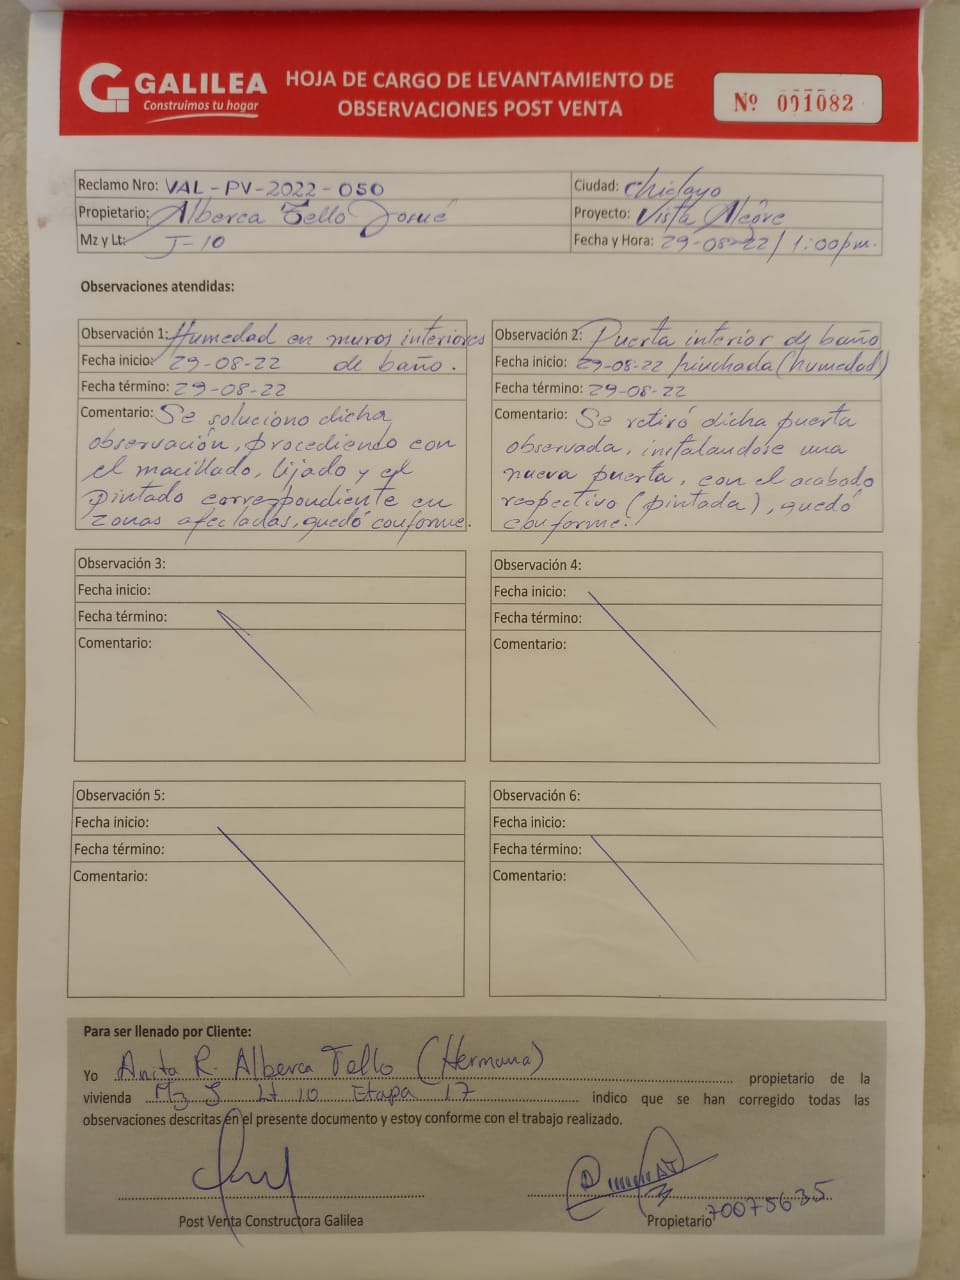 GALILEA
Construimos tu hogar
HOJA DE CARGO DE LEVANTAMIENTO DE
OBSERVACIONES POST VENTA
Nº 001082
Reclamo Nro: VAL-PV-2022-050
Ciudad: Chiclayo
Propietario: Alberca Tello Josué
Proyecto: Vista Alegre
Mz y Lt: J-10
Fecha y Hora: 29-08-22 / 1:00pm.
Observaciones atendidas:
Observación 1: Humedad en muros interiores
Fecha inicio: 29-08-22 de baño.
Fecha término: 29-08-22
Comentario: Se soluciono dicha
observación, procediendo con
el macillado, lijado y el
pintado correspondiente en
zonas afectadas, quedó conforme.
Observación 2: Puerta interior de baño
Fecha inicio: 29-08-22 hinchada (humedad)
Fecha término: 29-08-22
Comentario: Se retiró dicha puerta
observada, instalandose una
nueva puerta, con el acabado
respectivo (pintada), quedó
conforme.
Observación 3:
Fecha inicio:
Fecha término:
Comentario:
Observación 4:
Fecha inicio:
Fecha término:
Comentario:
Observación 5:
Fecha inicio:
Fecha término:
Comentario:
Observación 6:
Fecha inicio:
Fecha término:
Comentario:
Para ser llenado por Cliente:
Yo Anita R. Alberca Tello (Hermana) propietario de la
vivienda Mz J Lt 10 Etapa 17 indico que se han corregido todas las
observaciones descritas en el presente documento y estoy conforme con el trabajo realizado.
Post Venta Constructora Galilea
Propietario 70075635